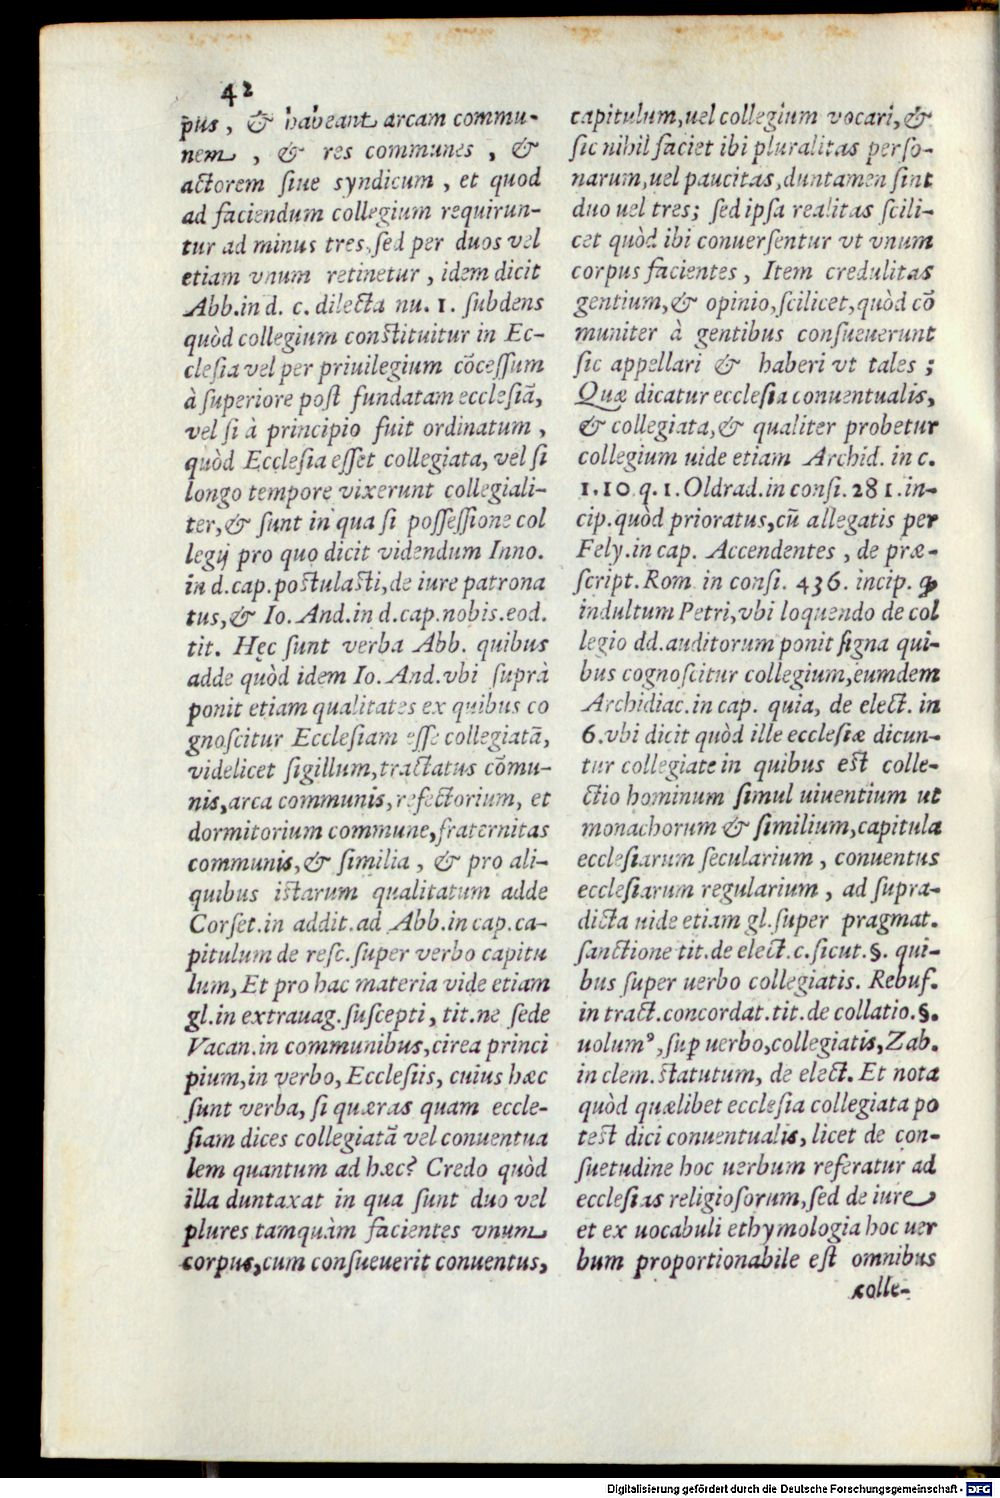 42
pus, & habeant arcam commu-
nem, & res communes, &
actorem siue syndicum, et quod
ad faciendum collegium requirun-
tur ad minus tres, sed per duos vel
etiam vnum retinetur, idem dicit
Abb. in d. c. dilecta nu. 1. subdens
quòd collegium constituitur in Ec-
clesia vel per priuilegium cõcessum
à superiore post fundatam ecclesiã,
vel si à principio fuit ordinatum,
quòd Ecclesia esset collegiata, vel si
longo tempore vixerunt collegiali-
ter, & sunt in qua si possessione col
legij pro quo dicit videndum Inno.
in d. cap. postulasti, de iure patrona
tus, & Io. And. in d. cap. nobis. eod.
tit. Hęc sunt verba Abb. quibus
adde quòd idem Io. And. vbi suprà
ponit etiam qualitates ex quibus co
gnoscitur Ecclesiam esse collegiatã,
videlicet sigillum, tractatus cõmu-
nis, arca communis, refectorium, et
dormitorium commune, fraternitas
communis, & similia, & pro ali-
quibus istarum qualitatum adde
Corset. in addit. ad Abb. in cap. ca-
pitulum de resc. super verbo capitu
lum, Et pro hac materia vide etiam
gl. in extrauag. suscepti, tit. ne sede
Vacan. in communibus, cirea princi
pium, in verbo, Ecclesiis, cuius hæc
sunt verba, si quæras quam eccle-
siam dices collegiatã vel conuentua
lem quantum ad hæc? Credo quòd
illa duntaxat in qua sunt duo vel
plures tamquàm facientes vnum
corpus, cum consueuerit conuentus,
capitulum, uel collegium vocari, &
sic nihil faciet ibi pluralitas perso-
narum, uel paucitas, duntamen sint
duo uel tres; sed ipsa realitas scili-
cet quòd ibi conuersentur vt vnum
corpus facientes, Item credulitas
gentium, & opinio, scilicet, quòd cõ
muniter à gentibus consueuerunt
sic appellari & haberi vt tales;
Quæ dicatur ecclesia conuentualis,
& collegiata, & qualiter probetur
collegium uide etiam Archid. in c.
1. 10 q. 1. Oldrad. in consi. 281. in-
cip. quòd prioratus, cũ allegatis per
Fely. in cap. Accendentes, de præ-
script. Rom. in consi. 436. incip. ꝙ
indultum Petri, vbi loquendo de col
legio dd. auditorum ponit signa qui-
bus cognoscitur collegium, eumdem
Archidiac. in cap. quia, de elect. in
6. vbi dicit quòd ille ecclesiæ dicun-
tur collegiate in quibus est colle-
ctio hominum simul uiuentium ut
monachorum & similium, capitula
ecclesiarum secularium, conuentus
ecclesiarum regularium, ad supra-
dicta uide etiam gl. super pragmat.
sanctione tit. de elect. c. sicut. §. qui-
bus super uerbo collegiatis. Rebuf.
in tract. concordat. tit. de collatio. §.
uolumꝰ, sup uerbo, collegiatis, Zab.
in clem. statutum, de elect. Et nota
quòd quælibet ecclesia collegiata po
test dici conuentualis, licet de con-
suetudine hoc uerbum referatur ad
ecclesias religiosorum, sed de iure
et ex uocabuli ethymologia hoc uer
bum proportionabile est omnibus
colle-
Digitalisierung gefördert durch die Deutsche Forschungsgemeinschaft - DFG